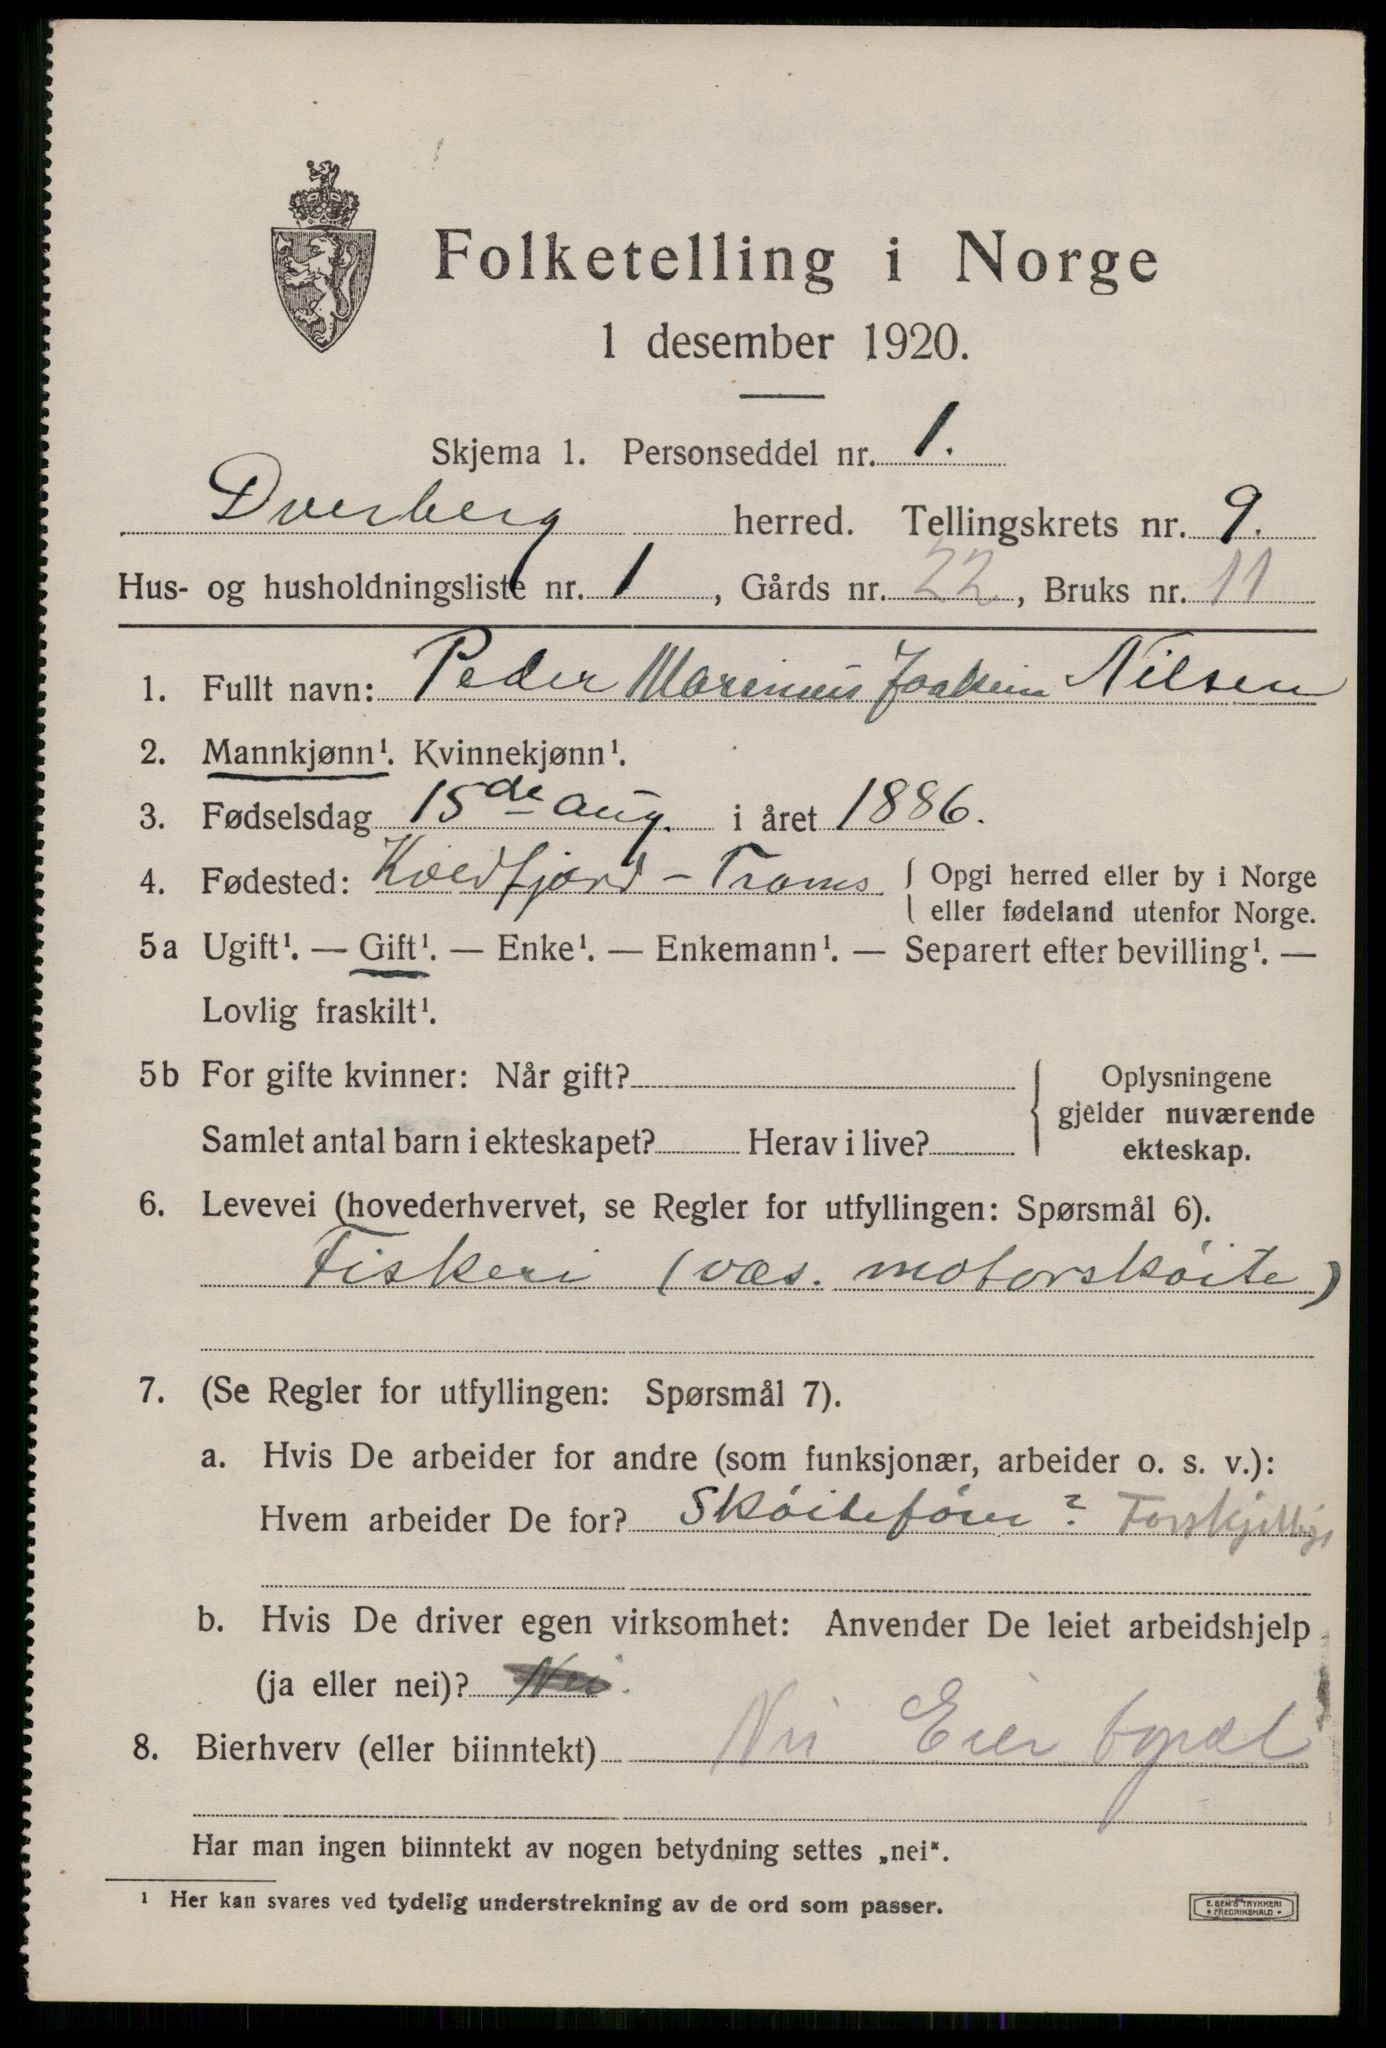 Folketelling i Norge
1 desember 1920.
Skjema 1. Personseddel nr. 1.
Dverberg herred. Tellingskrets nr. 9.
Hus- og husholdningsliste nr. 1, Gårds nr. 22, Bruks nr. 11
1. Fullt navn: Peder Marinius Joakim Nilsen
2. Mannkjønn¹. Kvinnekjønn¹.
3. Fødselsdag 15de aug. i året 1886.
4. Fødested: Kvedfjord - Troms { Opgi herred eller by i Norge
eller fødeland utenfor Norge.
5a Ugift¹. — Gift¹. — Enke¹. — Enkemann¹. — Separert efter bevilling¹. —
Lovlig fraskilt¹.
5b For gifte kvinner: Når gift?
Samlet antal barn i ekteskapet? Herav i live?
{ Oplysningene
gjelder nuværende
ekteskap.
6. Levevei (hovederhvervet, se Regler for utfyllingen: Spørsmål 6).
Fiskeri (væs. motorskøite)
7. (Se Regler for utfyllingen: Spørsmål 7).
a. Hvis De arbeider for andre (som funksjonær, arbeider o. s. v.):
Hvem arbeider De for? Skøitefører? Forskjellige
b. Hvis De driver egen virksomhet: Anvender De leiet arbeidshjelp
(ja eller nei)? Nei.
8. Bierhverv (eller biinntekt) Nei Eier
Har man ingen biinntekt av nogen betydning settes „nei“.
¹ Her kan svares ved tydelig understrekning av de ord som passer.
E. SEM'S TRYKKERI
* FREDRIKSHALD *